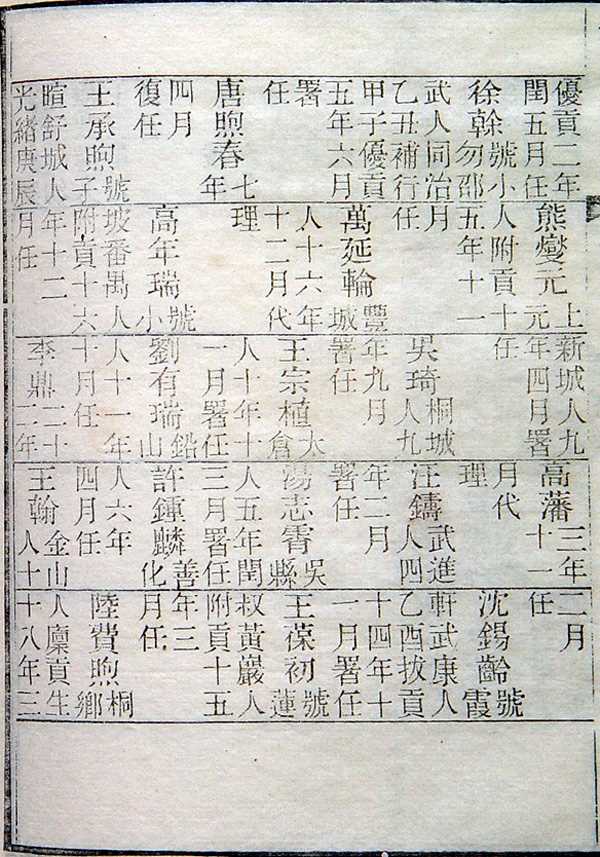 優貢二年
閏五月任
徐榦號小勿邵
武人同治
乙丑補行
甲子優貢
五年六月
署
任
唐煦春七年
四月
復任
王承煦號子
暄舒城人
光緒庚辰
熊燮元上元
人附貢十
五年十一
月
任
萬延輪豐城
人十六年
十二月代
理
高年瑞號小
坡番禺人
附貢十六
年十二
月任
新城人九
年四月署
任
吳琦桐城人九
年九月
署任
王宗植太倉
人十年十
一月署任
劉有瑞鉛山
人十一年
十月任
李鼎二十二年
高藩三年十一
月代
理
汪鑄武進人四
年二月
署任
湯志霄吳縣
人五年閏
三月署任
許鍾麟善化
人六年
四月任
王翰金山人十
二月
任
沈錫齡號霞
軒武康人
乙酉拔貢
十四年十
一月署任
王葆初號蓮
叔黃巖人
附貢十五
年三
月任
陸費煦桐鄉
人廩貢生
十八年三